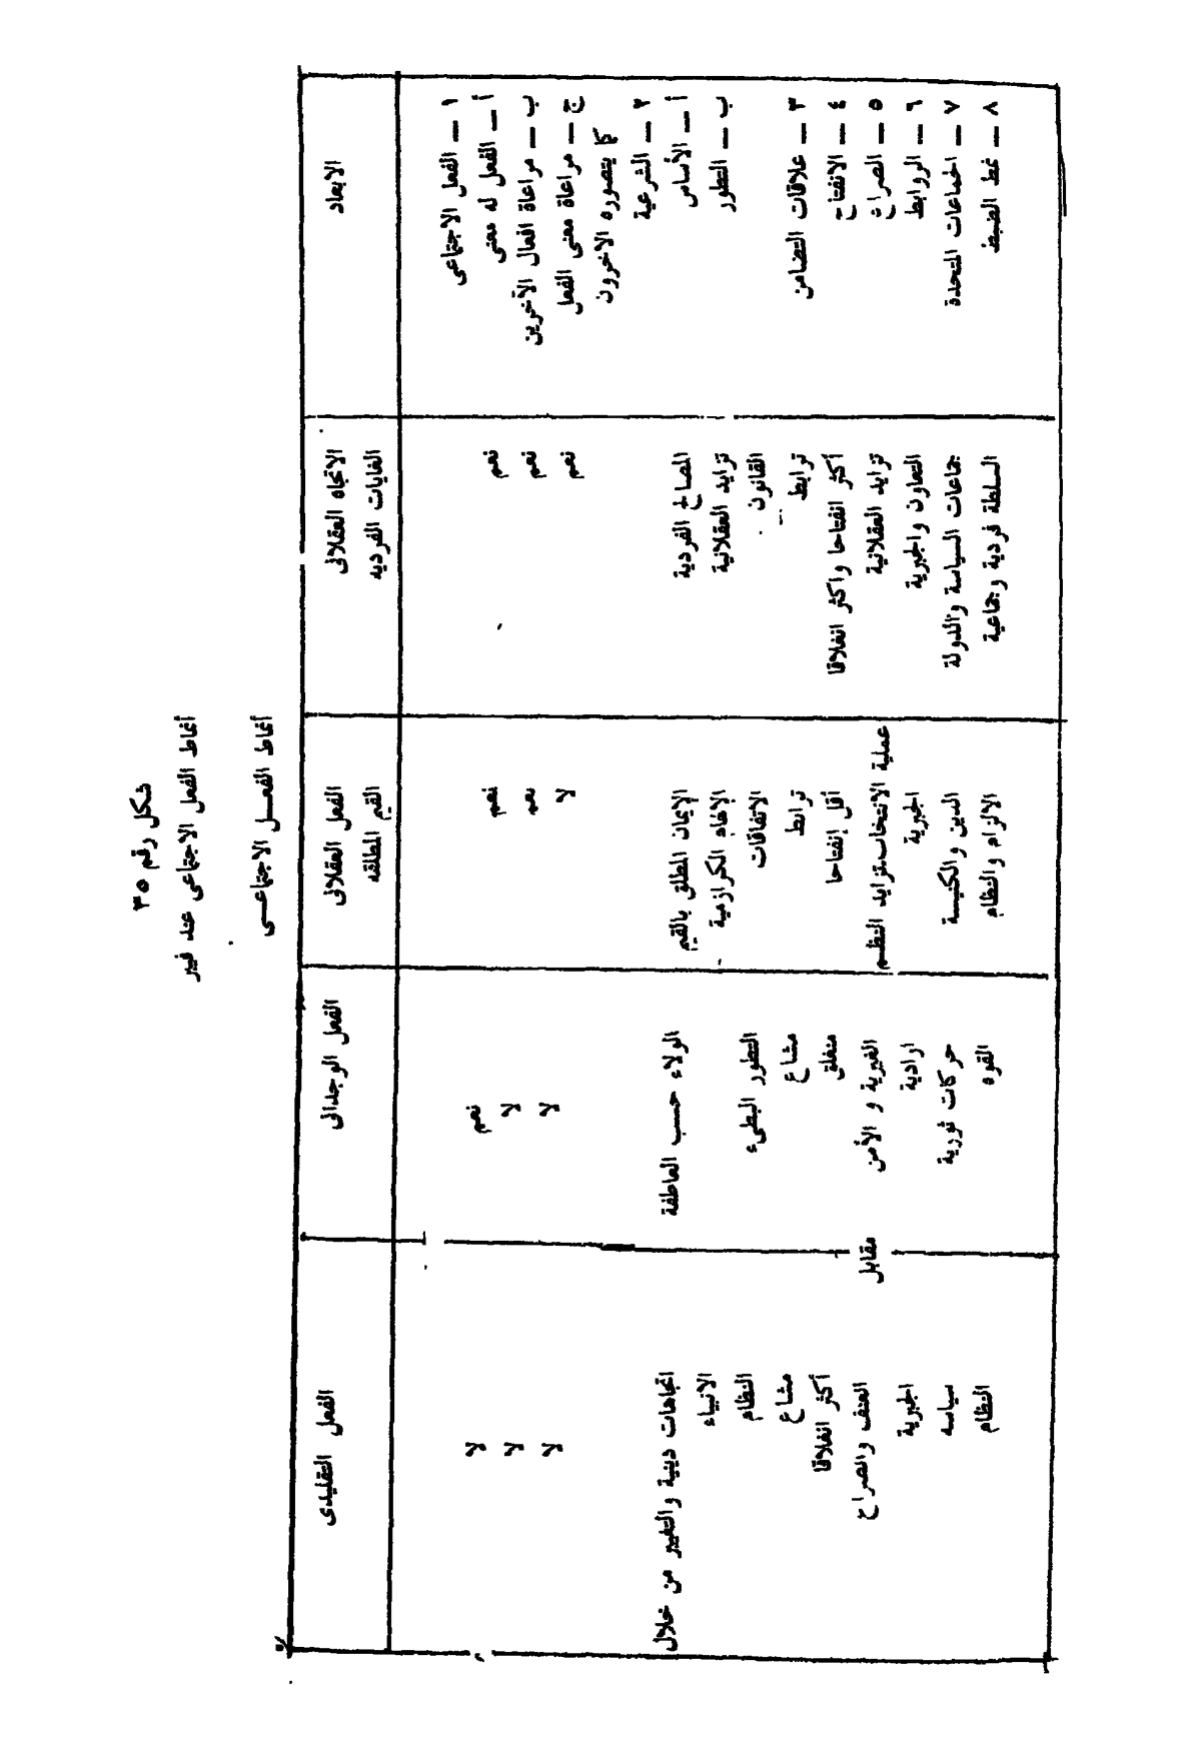 شكل رقم ٣٥
أنماط الفعل الاجتماعى عند فيبر
أنماط الفعــل الاجتماعــى
الابعاد
الاتجاه العقلانى
الغايات الفرديه
الفعل العقلانى
القيم المطلقه
الفعل الوجدانى
الفعل التقليدى
١ ــ الفعل الاجتماعى
أ ــ الفعل له معنى
نعم
نعم
نعم
لا
ب ــ مراعاة افعال الآخرين
نعم
نعم
لا
لا
ج ــ مراعاة معنى الفعل
كما يتصوره الاخرون
نعم
لا
لا
لا
٢ ــ الشرعية
أ ــ الأساس
المصالح الفردية
الإيمان المطلق بالقيم
الولاء حسب العاطفة
اتجاهات دينية والتغيير من خلال
الانبياء
ب ــ التطور
تزايد العقلانية
القانون
الإلهام الكرازمية
الاتفاقات
التطور البطىء
النظام
٣ ــ علاقات التضامن
ترابط
ترابط
مشاع
مشاع
٤ ــ الانفتاح
أكثر انفتاحا واكثر انغلاقا
أقل إنفتاحا
منغلق
أكثر انغلاقا
٥ ــ الصراع
تزايد العقلانية
عملية الانتخاب.تزايد النظم
الغيرية و الأمن
مقابل
العنف والصراع
٦ ــ الروابط
التعاون والجبرية
الجبرية
ارادية
الجبرية
٧ ــ الجماعات المتحدة
جماعات السياسة والدولة
الدين والكنيسة
حركات ثورية
سياسه
٨ ــ نمط الضبط
السلطة فردية وجماعية
الالزام والنظام
القوه
النظام